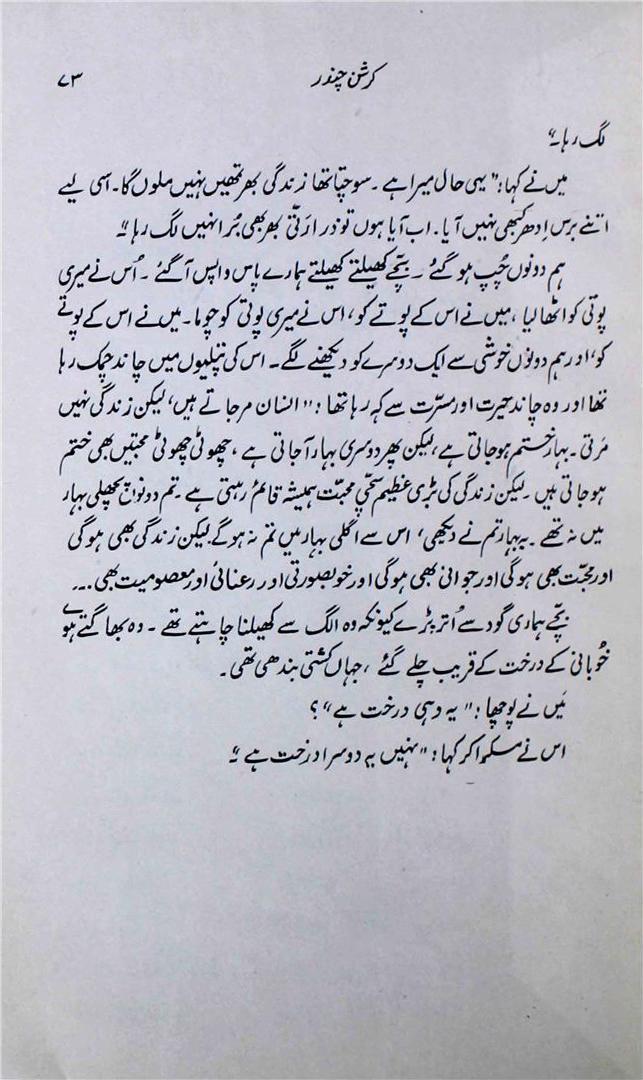 کرشن چندر ۷۳
لگ رہا۔"
میں نے کہا: "یہی حال میرا ہے۔ سوچتا تھا زندگی بھر تمھیں نہیں ملوں گا۔ اسی لیے
اتنے برس اِدھر کبھی نہیں آیا۔ اب آیا ہوں تو ذرا رَتّی بھر بھی بُرا نہیں لگ رہا۔"
ہم دونوں چُپ ہو گئے۔ بچّے کھیلتے کھیلتے ہمارے پاس واپس آ گئے۔ اُس نے میری
پوتی کو اٹھا لیا، میں نے اس کے پوتے کو، اس نے میری پوتی کو چوما۔ میں نے اس کے پوتے
کو، اور ہم دونوں خوشی سے ایک دوسرے کو دیکھنے لگے۔ اس کی پتلیوں میں چاند چمک رہا
تھا اور وہ چاند حیرت اور مسرّت سے کہہ رہا تھا: "انسان مر جاتے ہیں، لیکن زندگی نہیں
مَرتی۔ بہار ختم ہو جاتی ہے، لیکن پھر دوسری بہار آ جاتی ہے، چھوٹی چھوٹی محبتیں بھی ختم
ہو جاتی ہیں۔ لیکن زندگی کی بڑی عظیم سچّی محبّت ہمیشہ قائم رہتی ہے۔ تم دونوں پچھلی بہار
میں نہ تھے۔ یہ بہار تم نے دیکھی، اس سے اگلی بہار میں تم نہ ہو گے لیکن زندگی بھی ہو گی
اور محبّت بھی ہو گی اور جوانی بھی ہو گی اور خوبصورتی اور رعنائی اور معصومیت بھی...
بچّے ہماری گود سے اُتر پڑے کیونکہ وہ الگ سے کھیلنا چاہتے تھے۔ وہ بھاگتے ہوئے
خُوبانی کے درخت کے قریب چلے گئے، جہاں کشتی بندھی تھی۔
مَیں نے پوچھا: "یہ وہی درخت ہے"؟
اس نے مسکرا کر کہا: "نہیں یہ دوسرا درخت ہے۔"